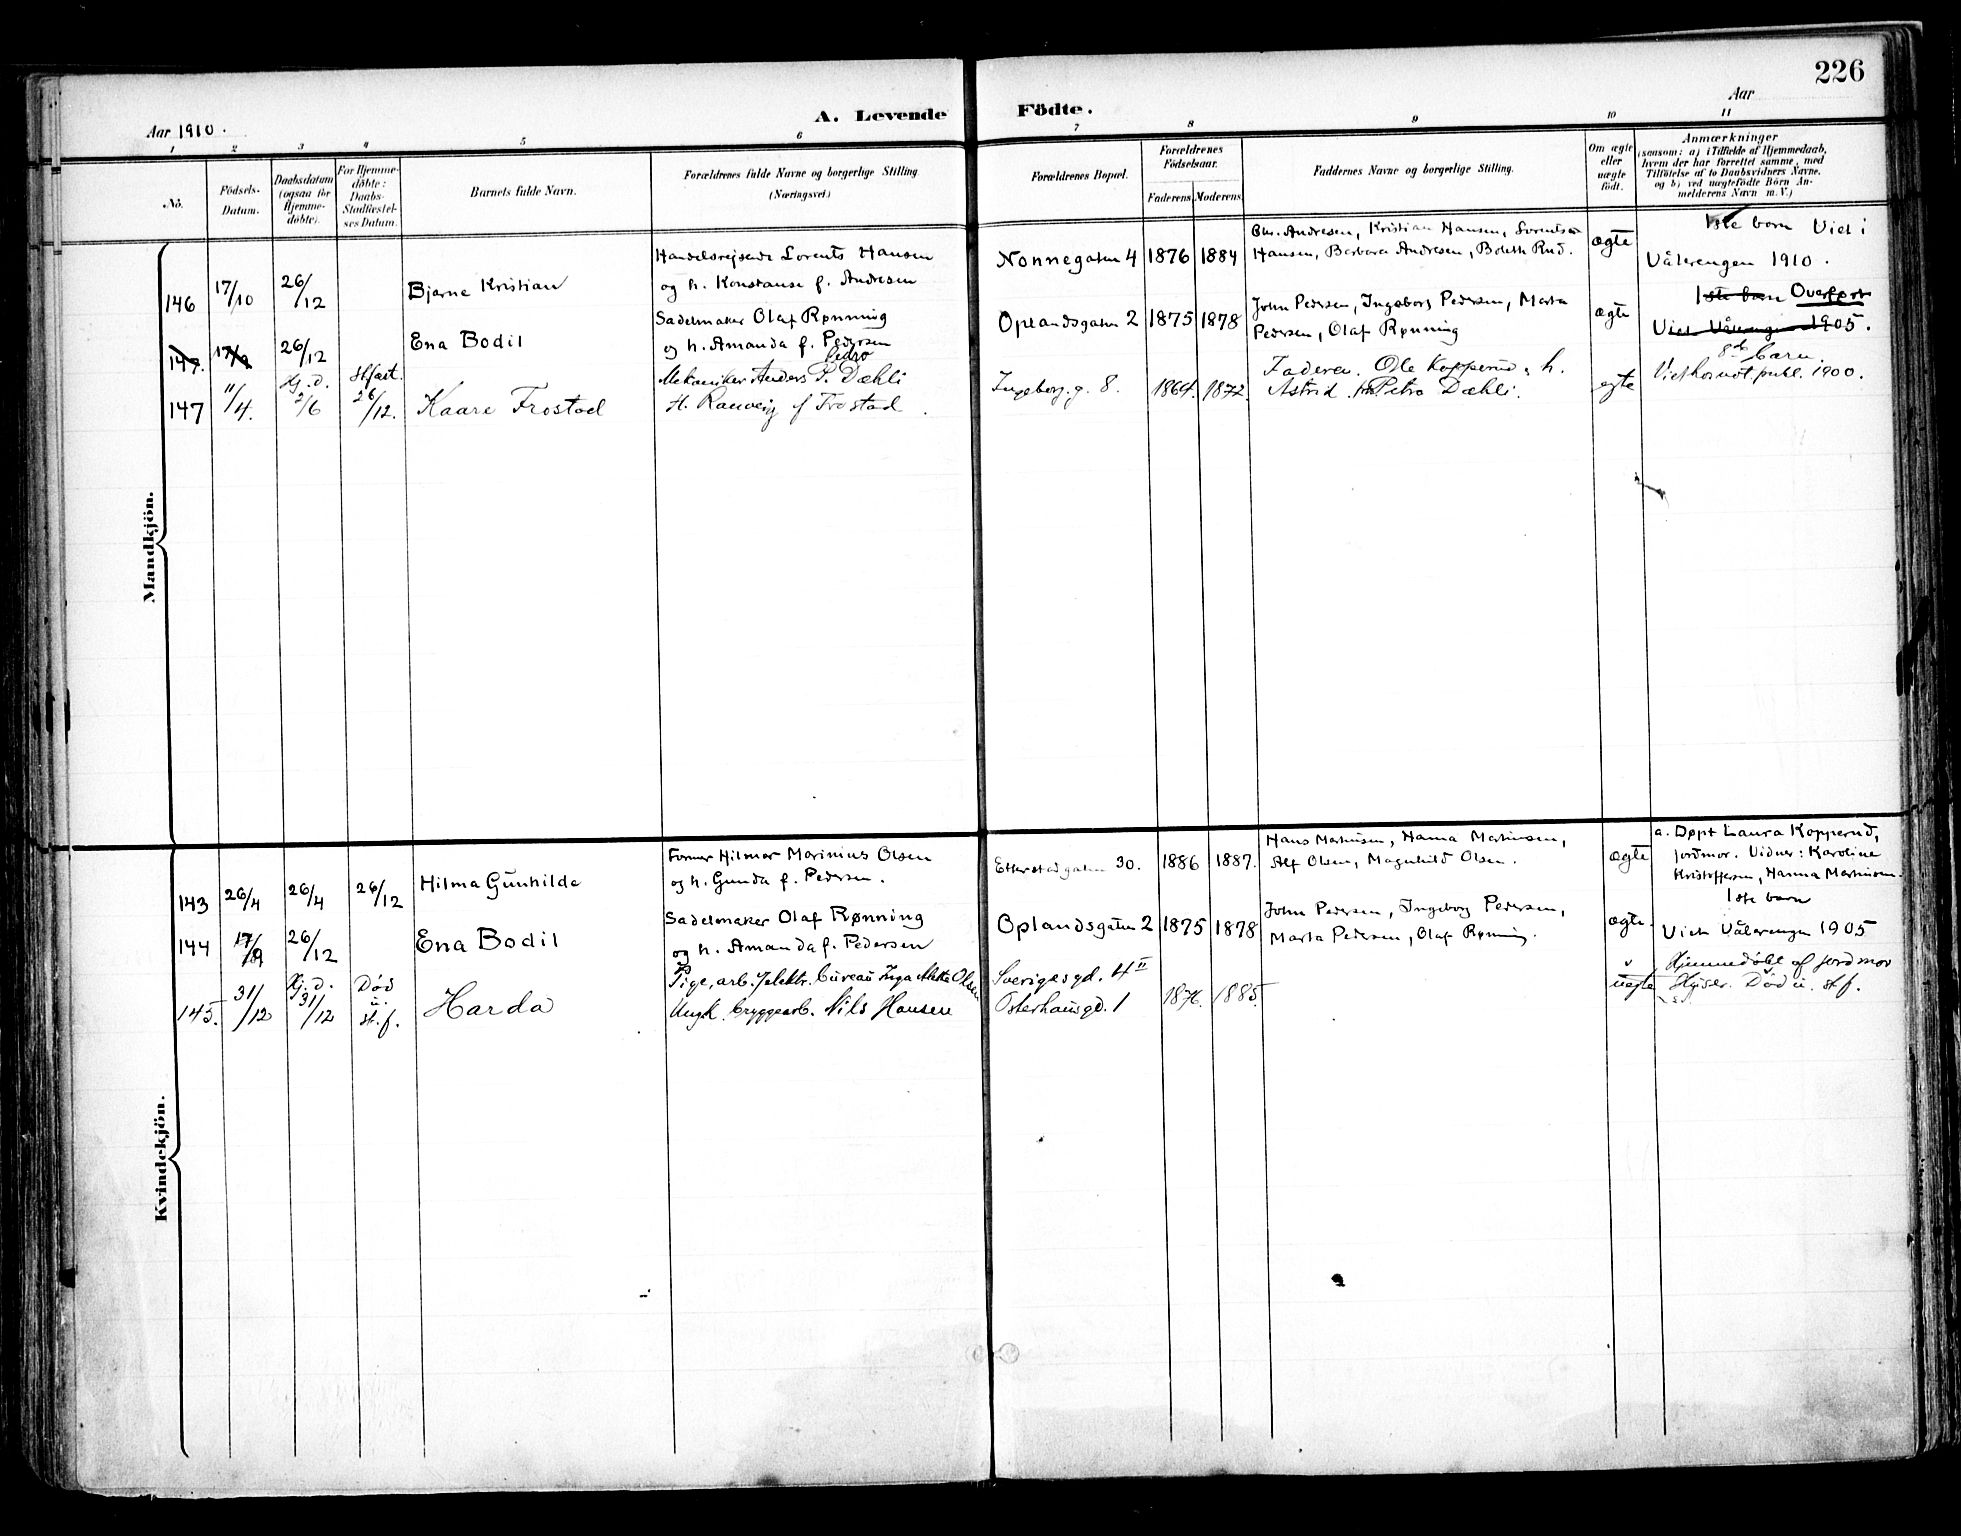 226
Aar 1910.
A. Levende Födte.
Aar
1 2 3 4 5 6 7 8 9 10 11
No.
Födsels-Datum.
Daabsdatum (ogsaa for Hjemme-döbte).
For Hjemme-döbte: Daabs-Stadfæstel-ses Datum.
Barnets fulde Navn.
Forældrenes fulde Navne og borgerlige Stilling (Næringsvei.)
Forældrenes Bopæl.
Forældrenes Födselsaar.
Faderens Moderens
Faddernes Navne og borgerlige Stilling.
Om ægte eller uægte födt.
Anmærkninger
(saasom: a) i Tilfælde af Hjemmedaab,
hvem der har forrettet samme, med
Tilföielse af to Daabsvidners Navne,
og b) ved uægtefödte Börn An-
melderens Navn m. V.)
Mandkjön.
146 17/10 26/12
Bjarne Kristian
Handelsrejsende Lorents Hansen
og h. Konstanse f. Andresen
Nonnegaten 4 1876 1884
Chr. Andresen, Kristian Hansen, Lorents
Hansen, Barbara Andresen, Boleth Rud.
ægte
1ste barn Viet i
Vålerengen 1910.
147. 17/9 26/12
Ena Bodil
Sadelmaker Olaf Rønning
og h. Amanda f. Pedersen
Oplandsgaten 2 1875 1878
John Pedersen, Ingeborg Pedersen, Marta
Pedersen, Olaf Rønning
ægte
1ste barn Overført
Viet Vålerengen 1905.
147 11/4. Hj. d. 2/6 Stfæst. 26/12.
Kaare Frostad
Pedro
Mekaniker Anders P. Dæhli
H. Ranveig f Frostad
Ingeborg. g. 8. 1864. 1872.
Faderen. Ole Kopperud, h.
Astrid. Petra Dæhli.
egte
8de barn.
Viet publ. 1900.
Kvindekjön.
143 26/4 26/4 26/12
Hilma Gunhilde
Former Hilmar Marinius Olsen
og h. Gunda f. Pedersen.
Etterstadgaten 30. 1886 1887.
Hans Martinsen, Hanna Martinsen,
Alf Olsen, Magnhild Olsen.
ægte
a. Døpt Laura Kopperud,
jordmor. Vidner: Karoline
Kristoffersen, Hanna Martinsen
1ste barn
144 17/9 26/12
Ena Bodil
Sadelmaker Olaf Rønning
og h. Amanda f. Pedersen
Oplandsgaten 2 1875 1878
John Pedersen, Ingeborg Pedersen,
Marta Pedersen, Olaf Rønning.
ægte.
Viet Vålerengen 1905
145. 31/12 Hj. d. 31/12 Død u. st. f.
Harda
Pige, arb. i elektr. bureau Inga Mette Olsen
Ungk. bryggearb. Nils Hansen
Sverigesgd. 4 II
Osterhausgd. 1 1876. 1885.
uegte
Hjemmedøbt af jordmor
Død u. st. f.